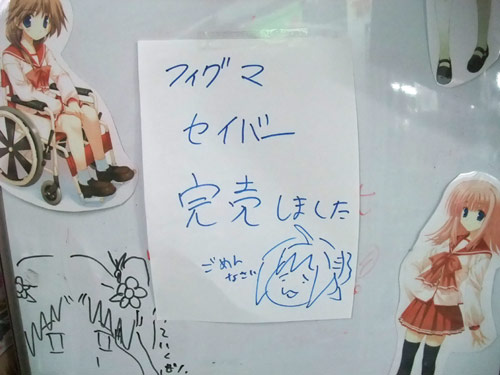 フィグマ
セイバー
完売しました
ごめん
なさい